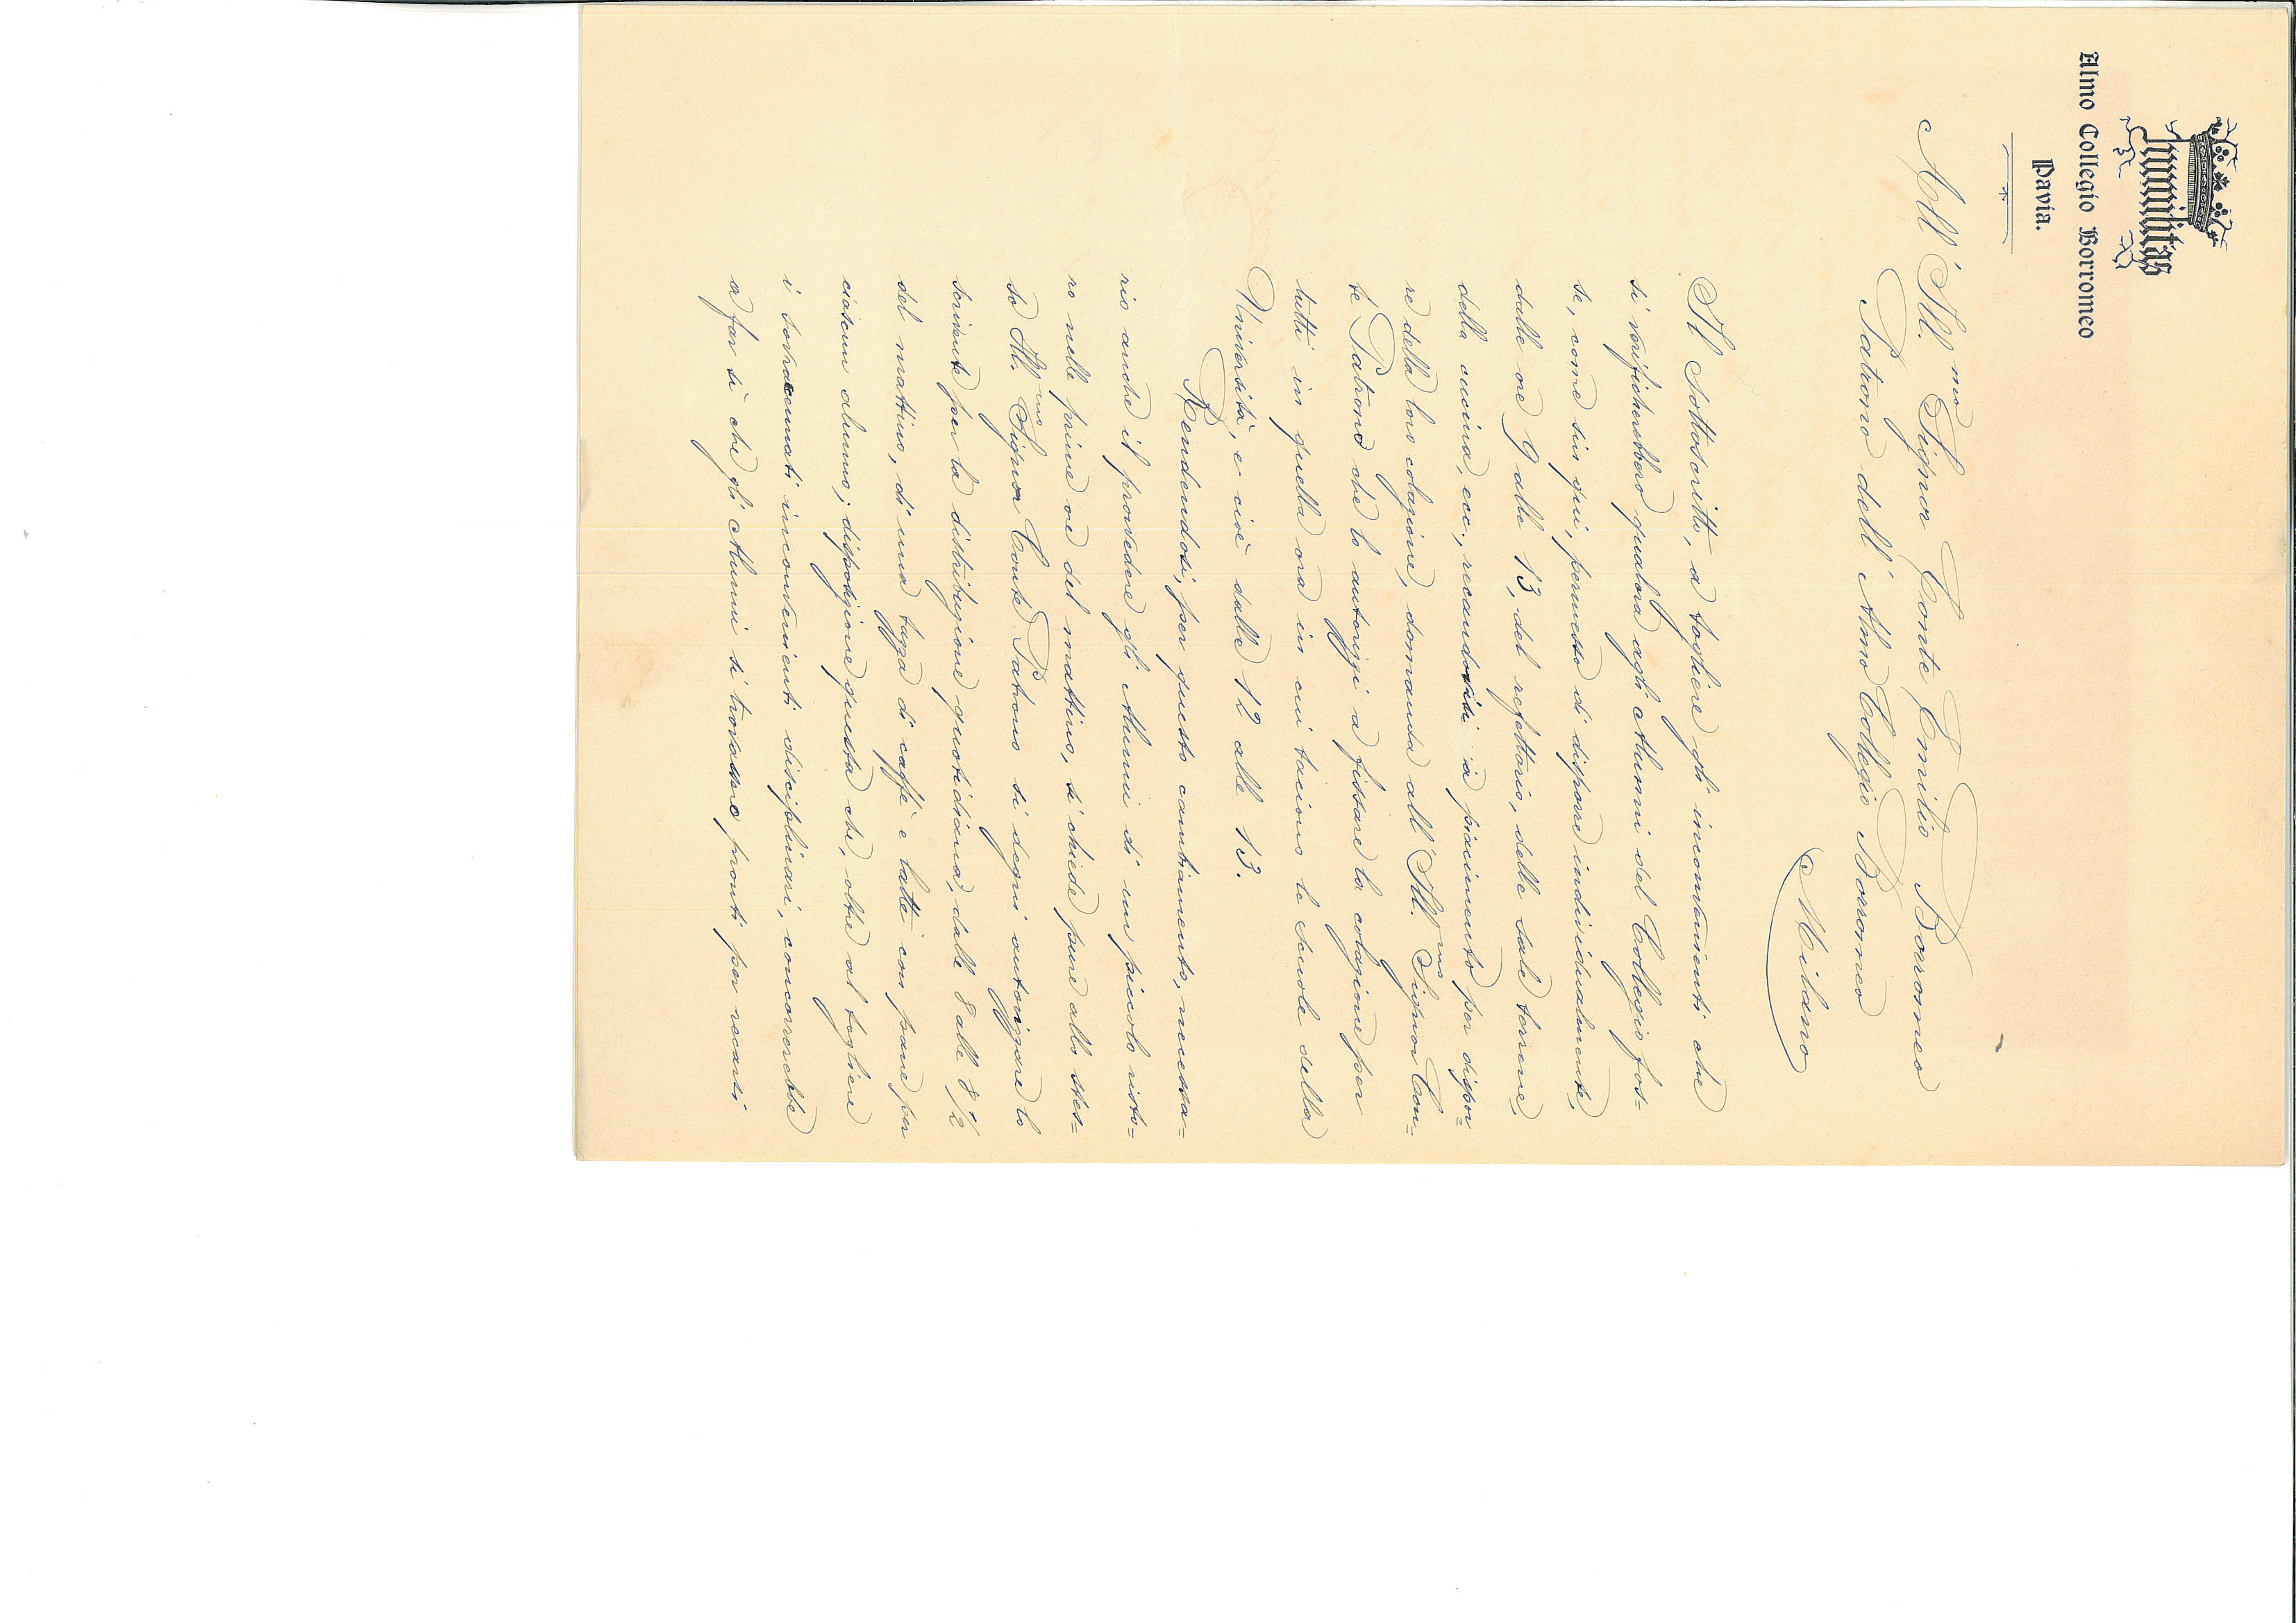 Humilitas
Almo Collegio Borromeo
Pavia.
All' Ill.mo Signor Conte Emilio Borromeo
Patrono dell' Almo Collegio Borromeo
Milano
Il sottoscritto, a togliere gli inconvenienti che
si verificherebbero qualora agli Alunni del Collegio fos=
se, come sin qui, permesso di disporre individualmente,
dalle ore 9 alle 13, del refettorio, delle sale terrene,
della cucina, ecc., recandovisi a piacimento per dispor=
re della loro colazione, domanda all' Ill.mo Signor Con=
te Patrono che lo autorizzi a fissare la colazione per
tutti in quella ora in cui tacciono le scuole della
Università, e cioè dalle 12 alle 13.
Rendendosi, per questo cambiamento, necessa=
rio anche il provvedere gli Alunni di un piccolo risto=
ro nelle prime ore del mattino, si chiede pure allo stes=
so Ill.mo Signor Conte Patrono si degni autorizzare lo
scrivente per la distribuzione quotidiana, dalle 8 alle 8 1/2
del mattino, di una tazza di caffè e latte con pane per
ciascun alunno; disposizione questa che, oltre al togliere
i sovracennati inconvenienti disciplinari, concorrerebbe
a far sì che gli Alunni si trovassero pronti per recarsi